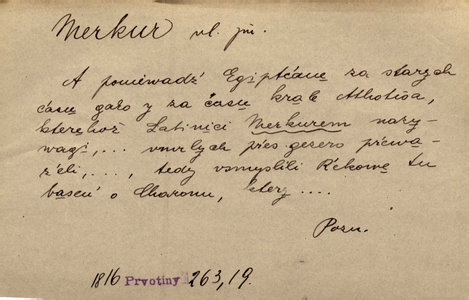 Merkur vl. jm.
A poniewadź Egipťané za starych
času gako y za času krale Athotisa,
kterehož Latinici Merkurem nazy-
wagi, ... vmrlych přes gezero přewa-
želi, ..., tedy vsmyslili Ržekowé tu
baseň o Charonu, který ....
Pozn.
1816 Prvotiny 263,19.